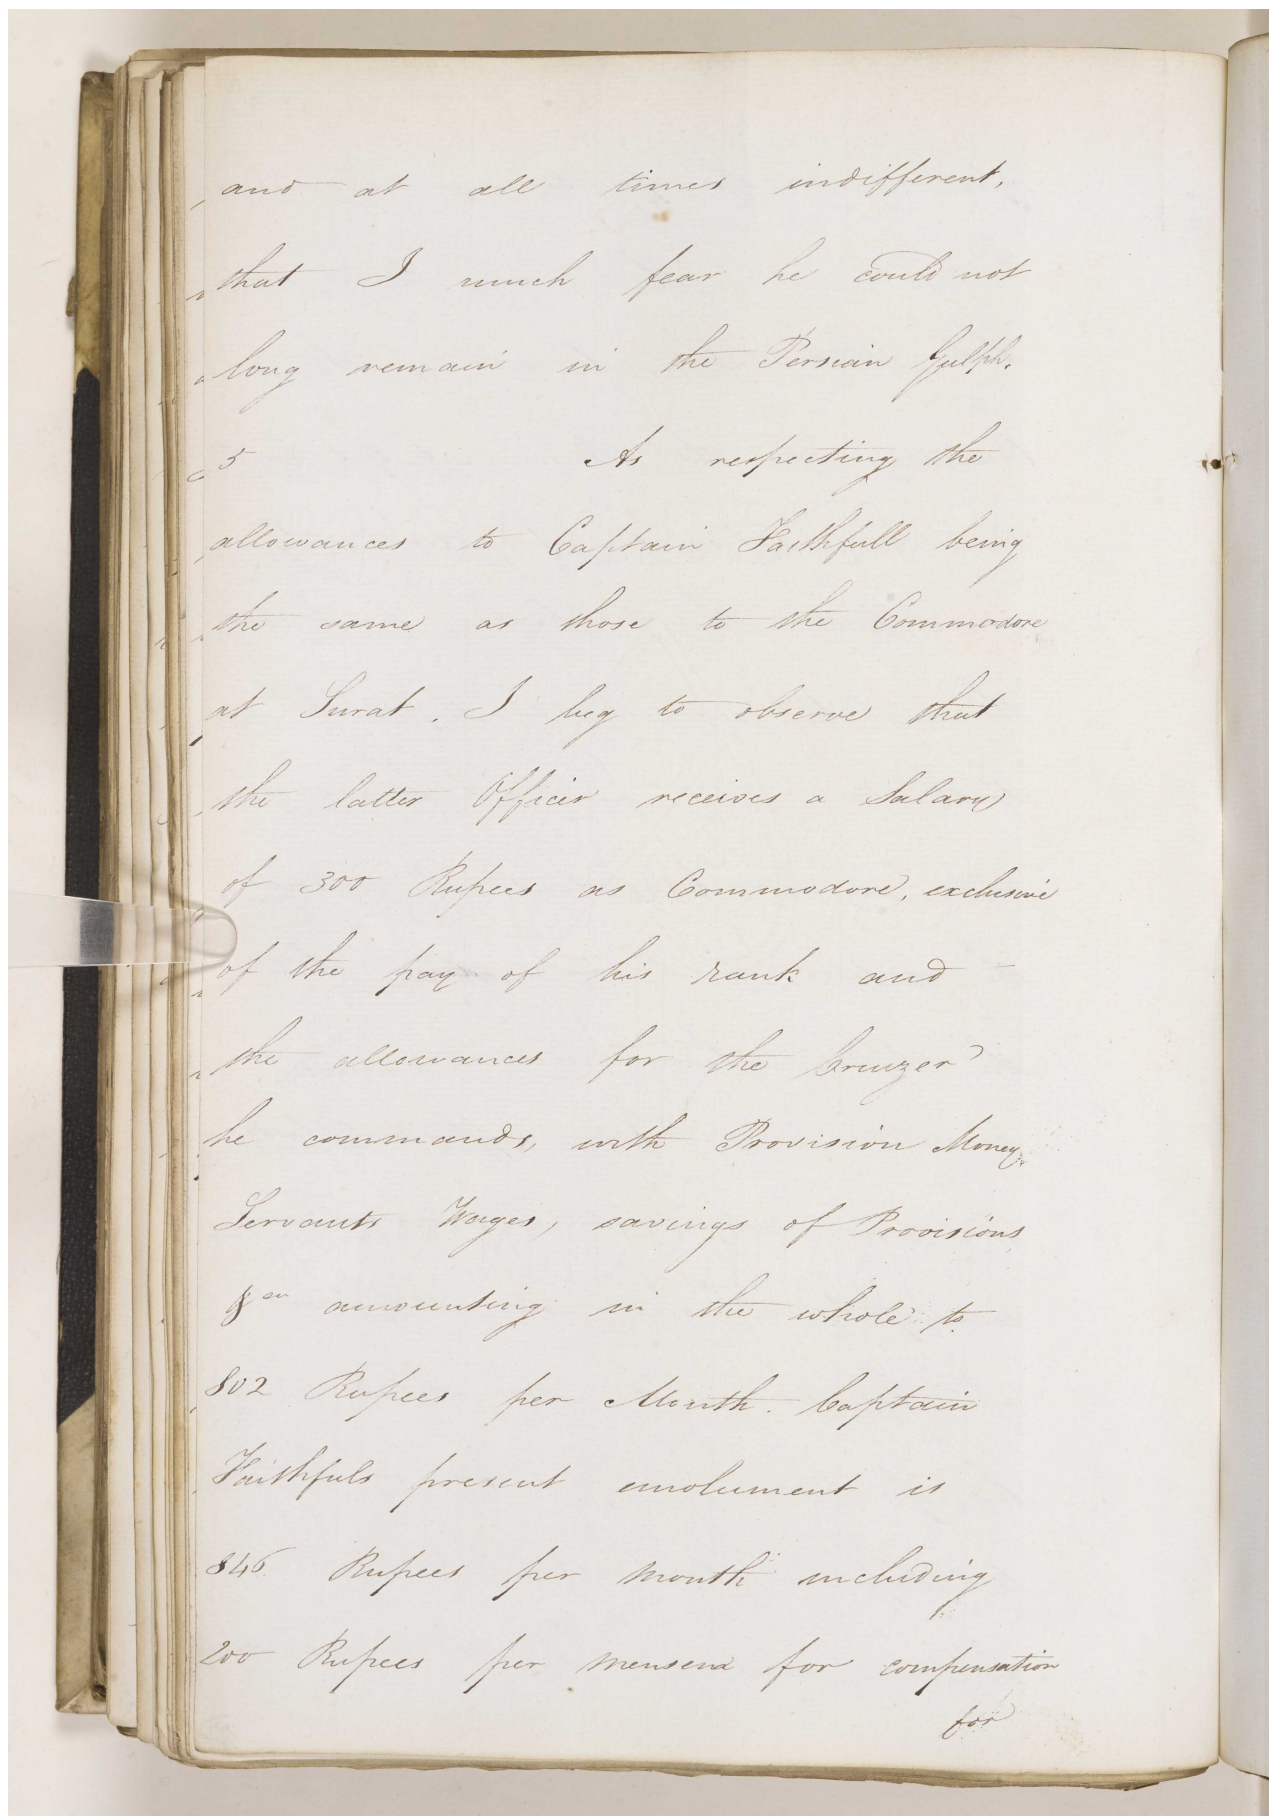 and at all times indifferent,
that I much fear he could not
long remain in the Persian Gulph.
5 As respecting the
allowances to Captain Faithfull being
the same as those to the Commodore
at Surat, I beg to observe that
the latter Officer receives a Salary
of 300 Rupees as Commodore, exclusive
of the pay of his rank and
the allowances for the Cruizer
he commands, with Provision Money
Servants Wages, savings of Provisions
&ca amounting in the whole to
802 Rupees per Month. Captain
Faithfuls present emolument is
846 Rupees per month including
200 Rupees per mensem for compensation
for